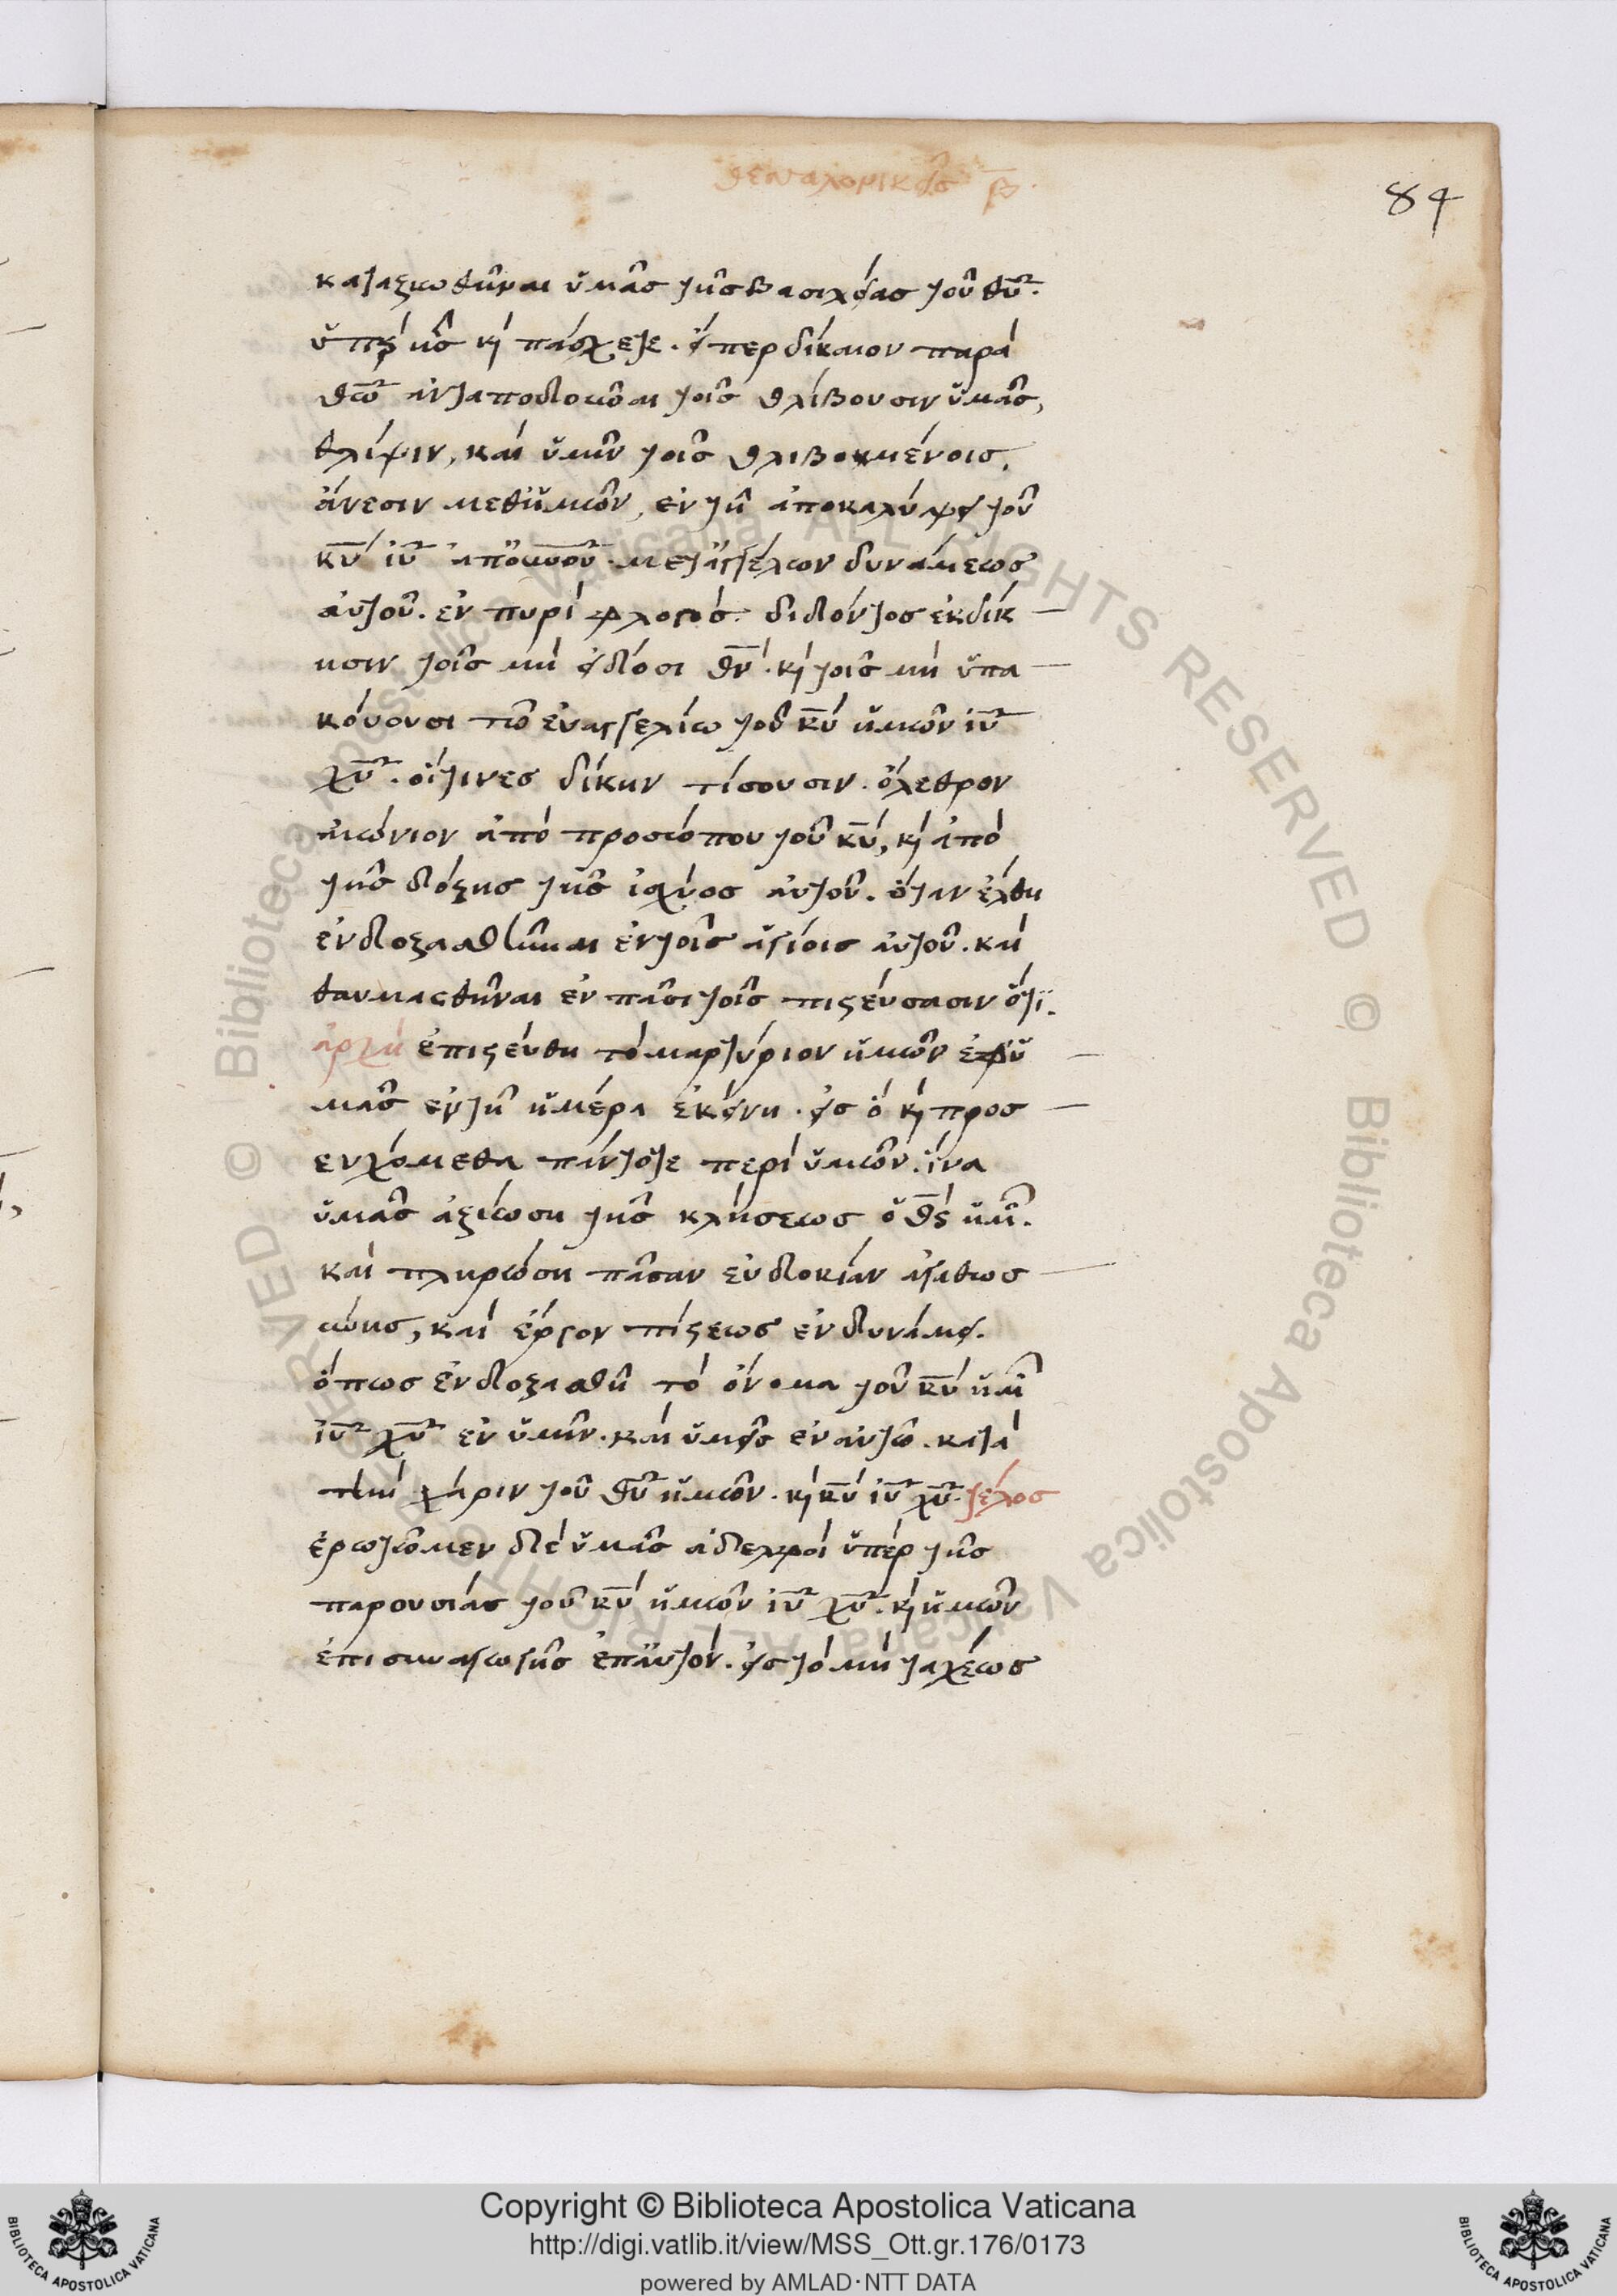 θεσσαλονικεῖς β.
84
καταξιωθῆναι ὑμᾶς τῆς βασιλείας τοῦ θυ̅.
ὑπὲρ ἧς κ̀ πάσχετε. εἴπερ δίκαιον παρὰ
θω̅ ἀνταποδοῦναι τοῖς θλίβουσιν ὑμᾶς,
θλίψιν, καὶ ὑμῖν τοῖς θλιβομένοις,
ἄνεσιν μεθ' ἡμῶν, ἐν τῆ ἀποκαλύψει τοῦ
κυ̅ ιυ̅ ἀπ' οὐνου̅. μετ' ἀγγέλων δυνάμεως
αὐτοῦ. ἐν πυρὶ φλογός. διδόντος ἐκδίκ
ησιν τοῖς μὴ εἰδόσι θν̅. κ̀ τοῖς μὴ ὑπα
κούουσι τῶ εὐαγγελίω τοῦ κυ̅ ἡμῶν ιυ̅
χυ̅. οἵτινες δίκην τίσουσιν. ὄλεθρον
αἰώνιον ἀπὸ προσώπου τοῦ κυ̅, κ̀ ἀπὸ
τῆς δόξης τῆς ἰσχύος αὐτοῦ. ὅταν ἔλθη
ἐνδοξασθῆναι ἐν τοῖς ἁγίοις αὐτοῦ. καὶ
θαυμασθῆναι ἐν πᾶσι τοῖς πιστεύσασιν ὅτι.
ἀρχὴ ἐπιστεύθη τὸ μαρτύριον ἡμῶν ἐφ' ὑ
μᾶς ἐν τῆ ἡμέρα ἐκείνη. εἰς ὃ κ̀ προσ
ευχόμεθα πάντοτε περὶ ὑμῶν. ἵνα
ὑμᾶς ἀξιώση τῆς κλήσεως ὁ θς̅ ἡμῶν.
καὶ πληρώση πᾶσαν εὐδοκίαν ἀγαθωσ
ύνης, καὶ ἔργον πίστεως ἐν δυνάμει.
ὅπως ἐνδοξασθῆ τὸ ὄνομα τοῦ κυ̅ ἡμῶν
ιυ̅ χυ̅ ἐν ὑμῖν. καὶ ὑμεῖς ἐν αὐτῶ. κατὰ
τὴν χάριν τοῦ θυ̅ ἡμῶν. κ̀ κυ̅ ιυ̅ χυ̅. τέλος
ἐρωτῶμεν δὲ ὑμᾶς ἀδελφοὶ ὑπὲρ τῆς
παρουσίας τοῦ κυ̅ ἡμῶν ιυ̅ χυ̅. κ̀ ἡμῶν
ἐπισυναγωγῆς ἐπ' αὐτὸν. εἰς τὸ μὴ ταχέως
Copyright © Biblioteca Apostolica Vaticana
http://digi.vatlib.it/view/MSS_Ott.gr.176/0173
powered by AMLAD·NTT DATA